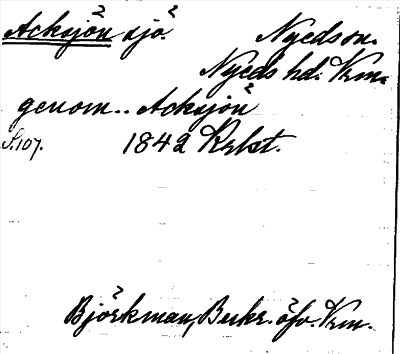 Acksjön sjö. Nyeds sn.
Nyeds hd. Vrm.
genom.. Acksjön
S.107. 1842 Krkst.
Björkman, Beskr. öfv. Vrm.